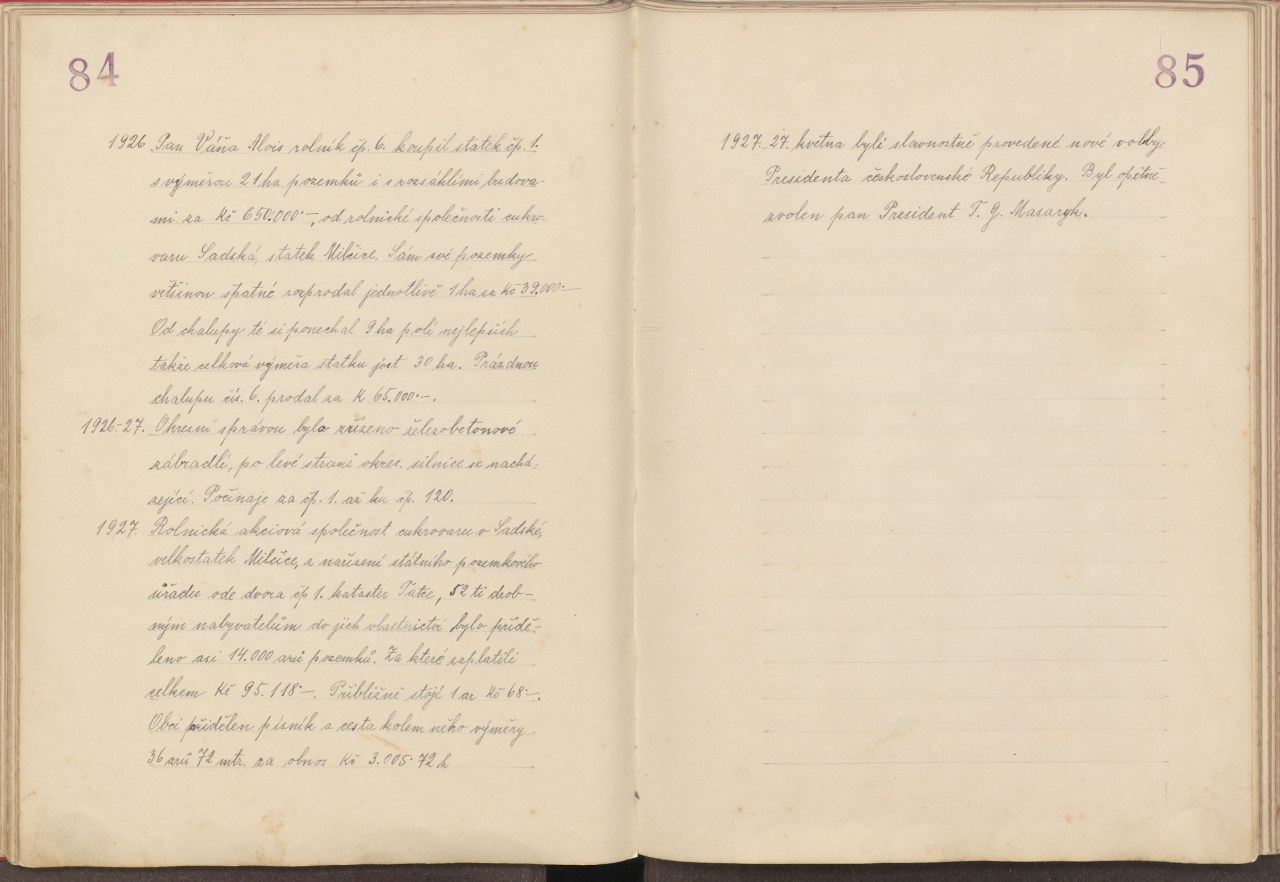 84
1926 Pan Váňa Alois rolník čp. 6. koupil statek čp. 1.
s výměrou 21 ha pozemků i s rozsáhlími budova-
mi za Kč 650.000·–, od rolnické společnosti cukro-
varu Sadská, statek Milčice. Sám své pozemky
většinou špatné rozprodal jednotlivě 1 ha za Kč 39.000·–
Od chalupy té si ponechal 9 ha polí nejlepších
takže celková výměra statku jest 30 ha. Prázdnou
chalupu čís. 6. prodal za K 65.000·–.
1926-27. Okresní správou bylo zřízeno železobetonové
zábradlí, po levé straně okres. silnice se nachá-
zející. Počínaje za čp. 1. až ku čp. 120.
1927. Rolnická akciová společnost cukrovaru v Sadské,
velkostatek Milčice, z nařízení státního pozemkového
úřadu ode dvora čp 1. kataster Tatce, 52 ti drob-
ným nabyvatelům do jich vlastnictví bylo přidě-
leno asi 14.000 arů pozemků. Za které zaplatili
celkem Kč 95.118·–. Přibližně stojí 1 ar Kč 68·–.
Obci přidělen písník a cesta kolem něho výměry
36 arů 72 mtr. za obnos Kč 3.005·72 h
85
1927. 27. května byli slavnostně provedené nové volby
Presidenta československé Republiky. Byl opětně
zvolen pan President T. G. Masaryk.